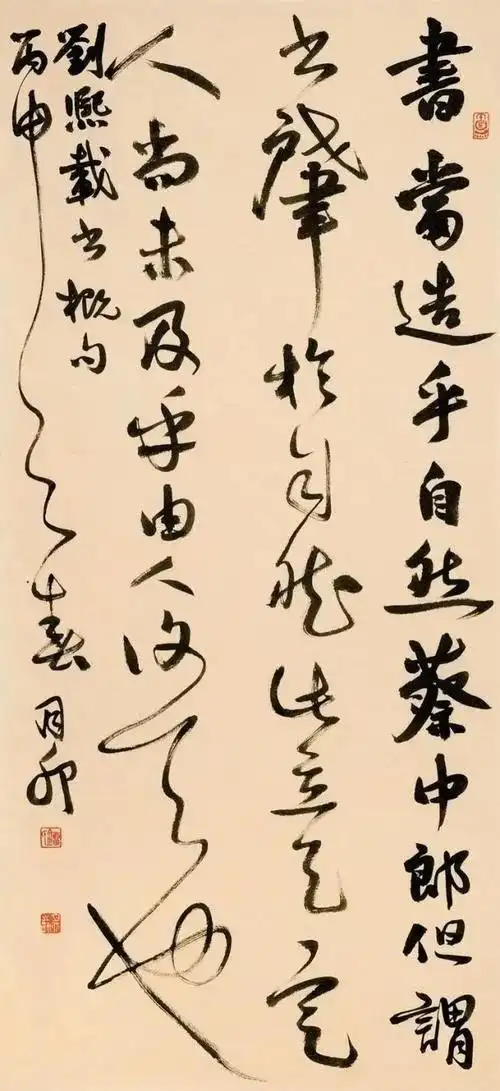 書當造乎自然蔡中郎但謂
書肇於自然此立天定
人尚未及乎由人復天也
劉熙載書概句
丙申之春月卯